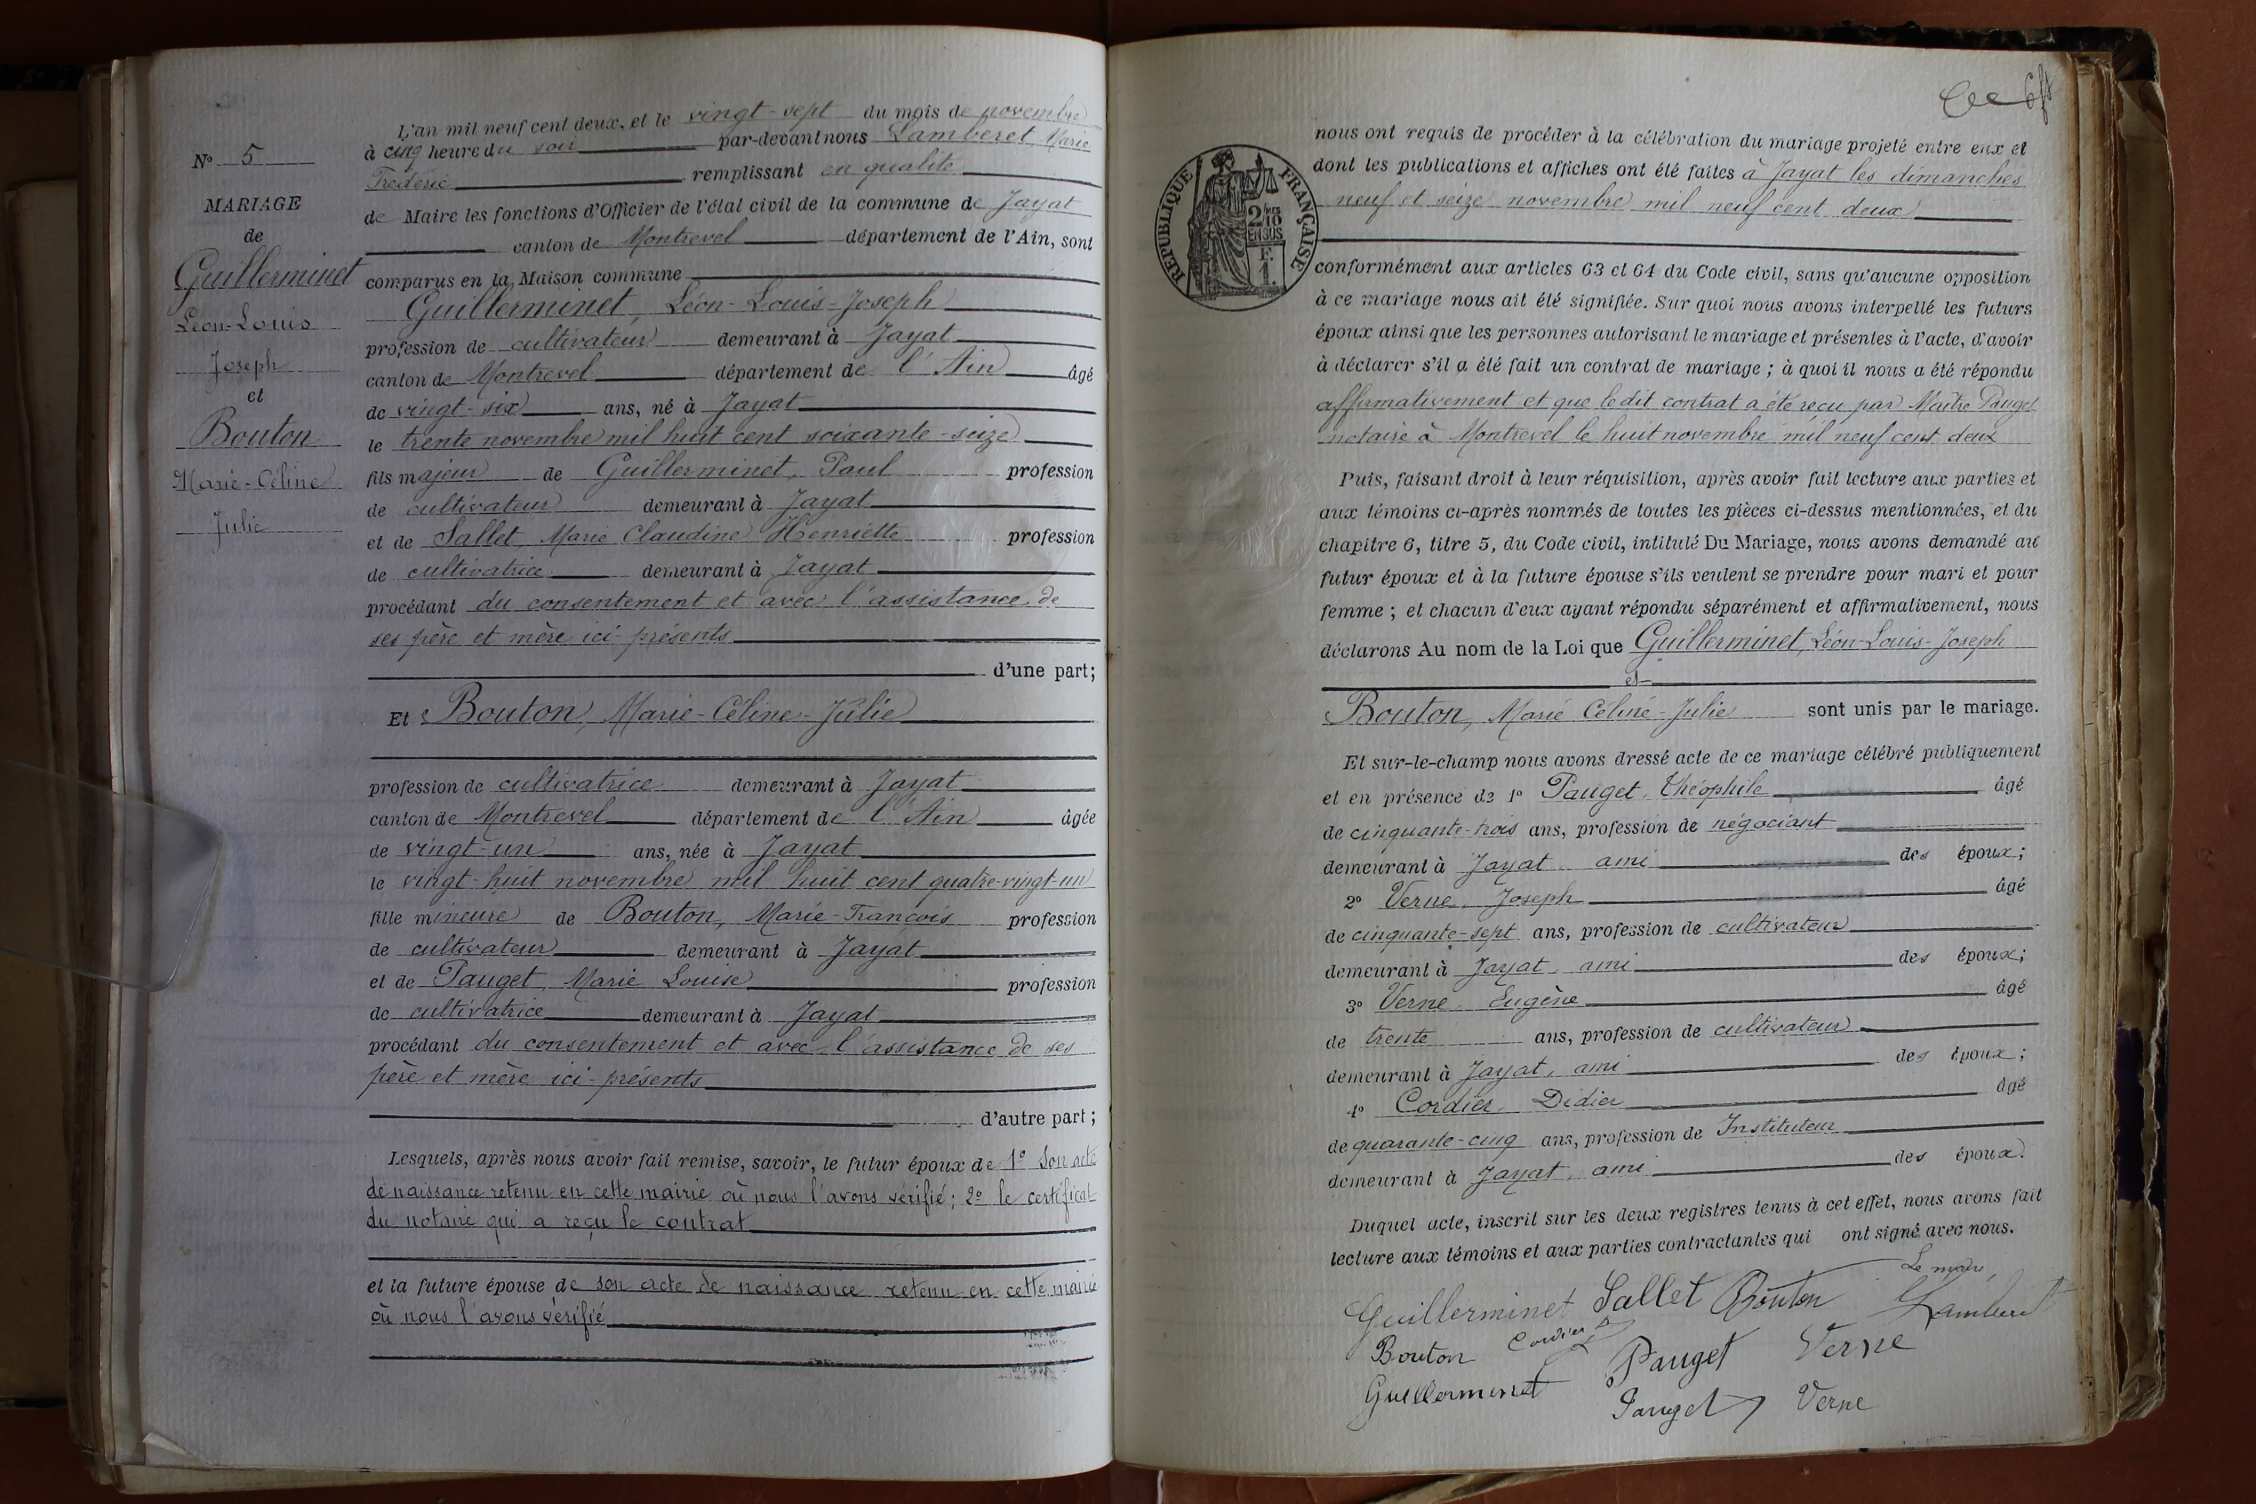 N° 5
MARIAGE
de
Guillerminet
Léon-Louis
Joseph
et
Bouton
Marie-Céline
Julie
L'an mil neuf cent deux, et le vingt-sept du mois de novembre
à cinq heure du soir par-devant nous Lamberet, Marie
Frédéric remplissant en qualité
de Maire les fonctions d'Officier de l'état civil de la commune de Jayat
canton de Montrevel département de l'Ain, sont
comparus en la Maison commune
Guillerminet, Léon-Louis-Joseph
profession de cultivateur demeurant à Jayat
canton de Montrevel département de l'Ain âgé
de vingt-six ans, né à Jayat
le trente novembre mil huit cent soixante-seize
fils majeur de Guillerminet, Paul profession
de cultivateur demeurant à Jayat
et de Sallet, Marie Claudine Henriette profession
de cultivatrice demeurant à Jayat
procédant du consentement et avec l'assistance de
ses père et mère ici présents
d'une part;
Et Bouton, Marie-Céline-Julie
profession de cultivatrice demeurant à Jayat
canton de Montrevel département de l'Ain âgée
de vingt-un ans, née à Jayat
le vingt-huit novembre mil huit cent quatre-vingt-un
fille mineure de Bouton, Marie-François profession
de cultivateur demeurant à Jayat
et de Pauget, Marie Louise profession
de cultivatrice demeurant à Jayat
procédant du consentement et avec l'assistance de ses
père et mère ici-présents
d'autre part;
Lesquels, après nous avoir fait remise, savoir, le futur époux de 1° son acte
de naissance retenu en cette mairie où nous l'avons vérifié; 2° le certificat
du notaire qui a reçu le contrat
et la future épouse de son acte de naissance retenu en cette mairie
où nous l'avons vérifié
RÉPUBLIQUE FRANÇAISE
2/10
EN SUS
F.
1.
nous ont requis de procéder à la célébration du mariage projeté entre eux et
dont les publications et affiches ont été faites à Jayat les dimanches
neuf et seize novembre mil neuf cent deux
conformément aux articles 63 et 64 du Code civil, sans qu'aucune opposition
à ce mariage nous ait été signifiée. Sur quoi nous avons interpellé les futurs
époux ainsi que les personnes autorisant le mariage et présentes à l'acte, d'avoir
à déclarer s'il a été fait un contrat de mariage; à quoi il nous a été répondu
affirmativement et que le dit contrat a été reçu par Maître Pauget
notaire à Montrevel le huit novembre mil neuf cent deux
Puis, faisant droit à leur réquisition, après avoir fait lecture aux parties et
aux témoins ci-après nommés de toutes les pièces ci-dessus mentionnées, et du
chapitre 6, titre 5, du Code civil, intitulé Du Mariage, nous avons demandé au
futur époux et à la future épouse s'ils veulent se prendre pour mari et pour
femme; et chacun d'eux ayant répondu séparément et affirmativement, nous
déclarons Au nom de la Loi que Guillerminet, Léon-Louis-Joseph
et
Bouton, Marie Céline-Julie sont unis par le mariage.
Et sur-le-champ nous avons dressé acte de ce mariage célébré publiquement
et en présence de 1° Pauget, Théophile âgé
de cinquante-trois ans, profession de négociant
demeurant à Jayat ami des époux;
2° Verne, Joseph âgé
de cinquante-sept ans, profession de cultivateur
demeurant à Jayat, ami des époux;
3° Verne Eugène âgé
de trente ans, profession de cultivateur
demeurant à Jayat, ami des époux;
4° Cordier, Didier âgé
de quarante-cinq ans, profession de Instituteur
demeurant à Jayat, ami des époux.
Duquel acte, inscrit sur les deux registres tenus à cet effet, nous avons fait
lecture aux témoins et aux parties contractantes qui ont signé avec nous.
Le maire,
Guillerminet Sallet Bouton Lamberet
Bouton Cordier Pauget Verne
Guillerminet Pauget Verne